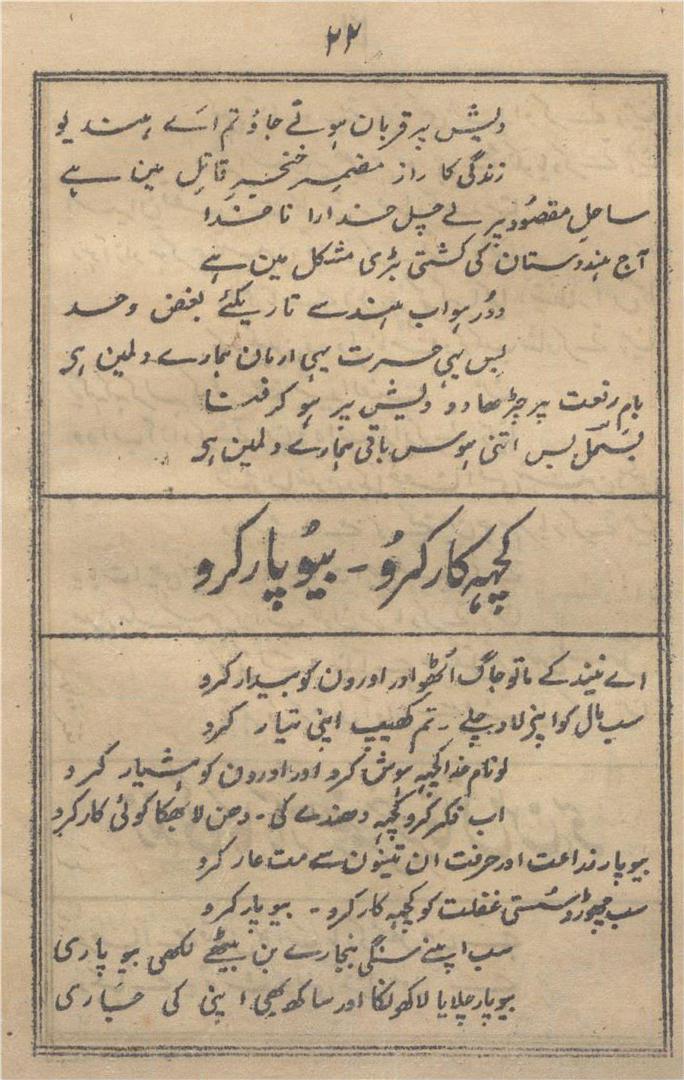 ۲۲
دیش پر قربان ہوتے جاؤ تم اَے ہندیو
زندگی کا راز مضمر خنجرِ قاتِل مین ہے
ساحلِ مقصُود پر لے چل خدارا ناخدا
آج ہندوستان کی کشتی بڑی مشکل مین ہے
دوُر ہو اب ہند سے تاریکئے بغض و حسد
بس یہی حسرت یہی ارمان ہمارے دلمین ہی
بامِ رفعت پر چڑھا دو دیش پر ہو کر فدا
بسمل بس اتنی ہوس باقی ہمارے دلمین ہی
کچہہ کار کرو - بیوُپار کرو
اے نیند کے ماتو جاگ اُٹھو اور اورون کو بیدار کرو
سب بال کو اپنے لاد چلے - تم کھیپ اپنی تیار کرو
لو نام خدا کچہہ ہوش کرو اور اورون کو ہشیار کرو
اب فکر کرو کچہہ دھندے کی - دھن لابھکا کوئی کار کرو
بیوپار زراعت اور حرفت ان تینون سے مت عار کرو
سب چھوڑو سُستی غفلت کو کچہہ کار کرو - بیوپار کرو
سب اپنے سنگی بنجارے بن بیٹھے لکھی بیوپاری
بیوپار چلایا لاکھونکا اور ساکھ بھی اپنی کی جاری